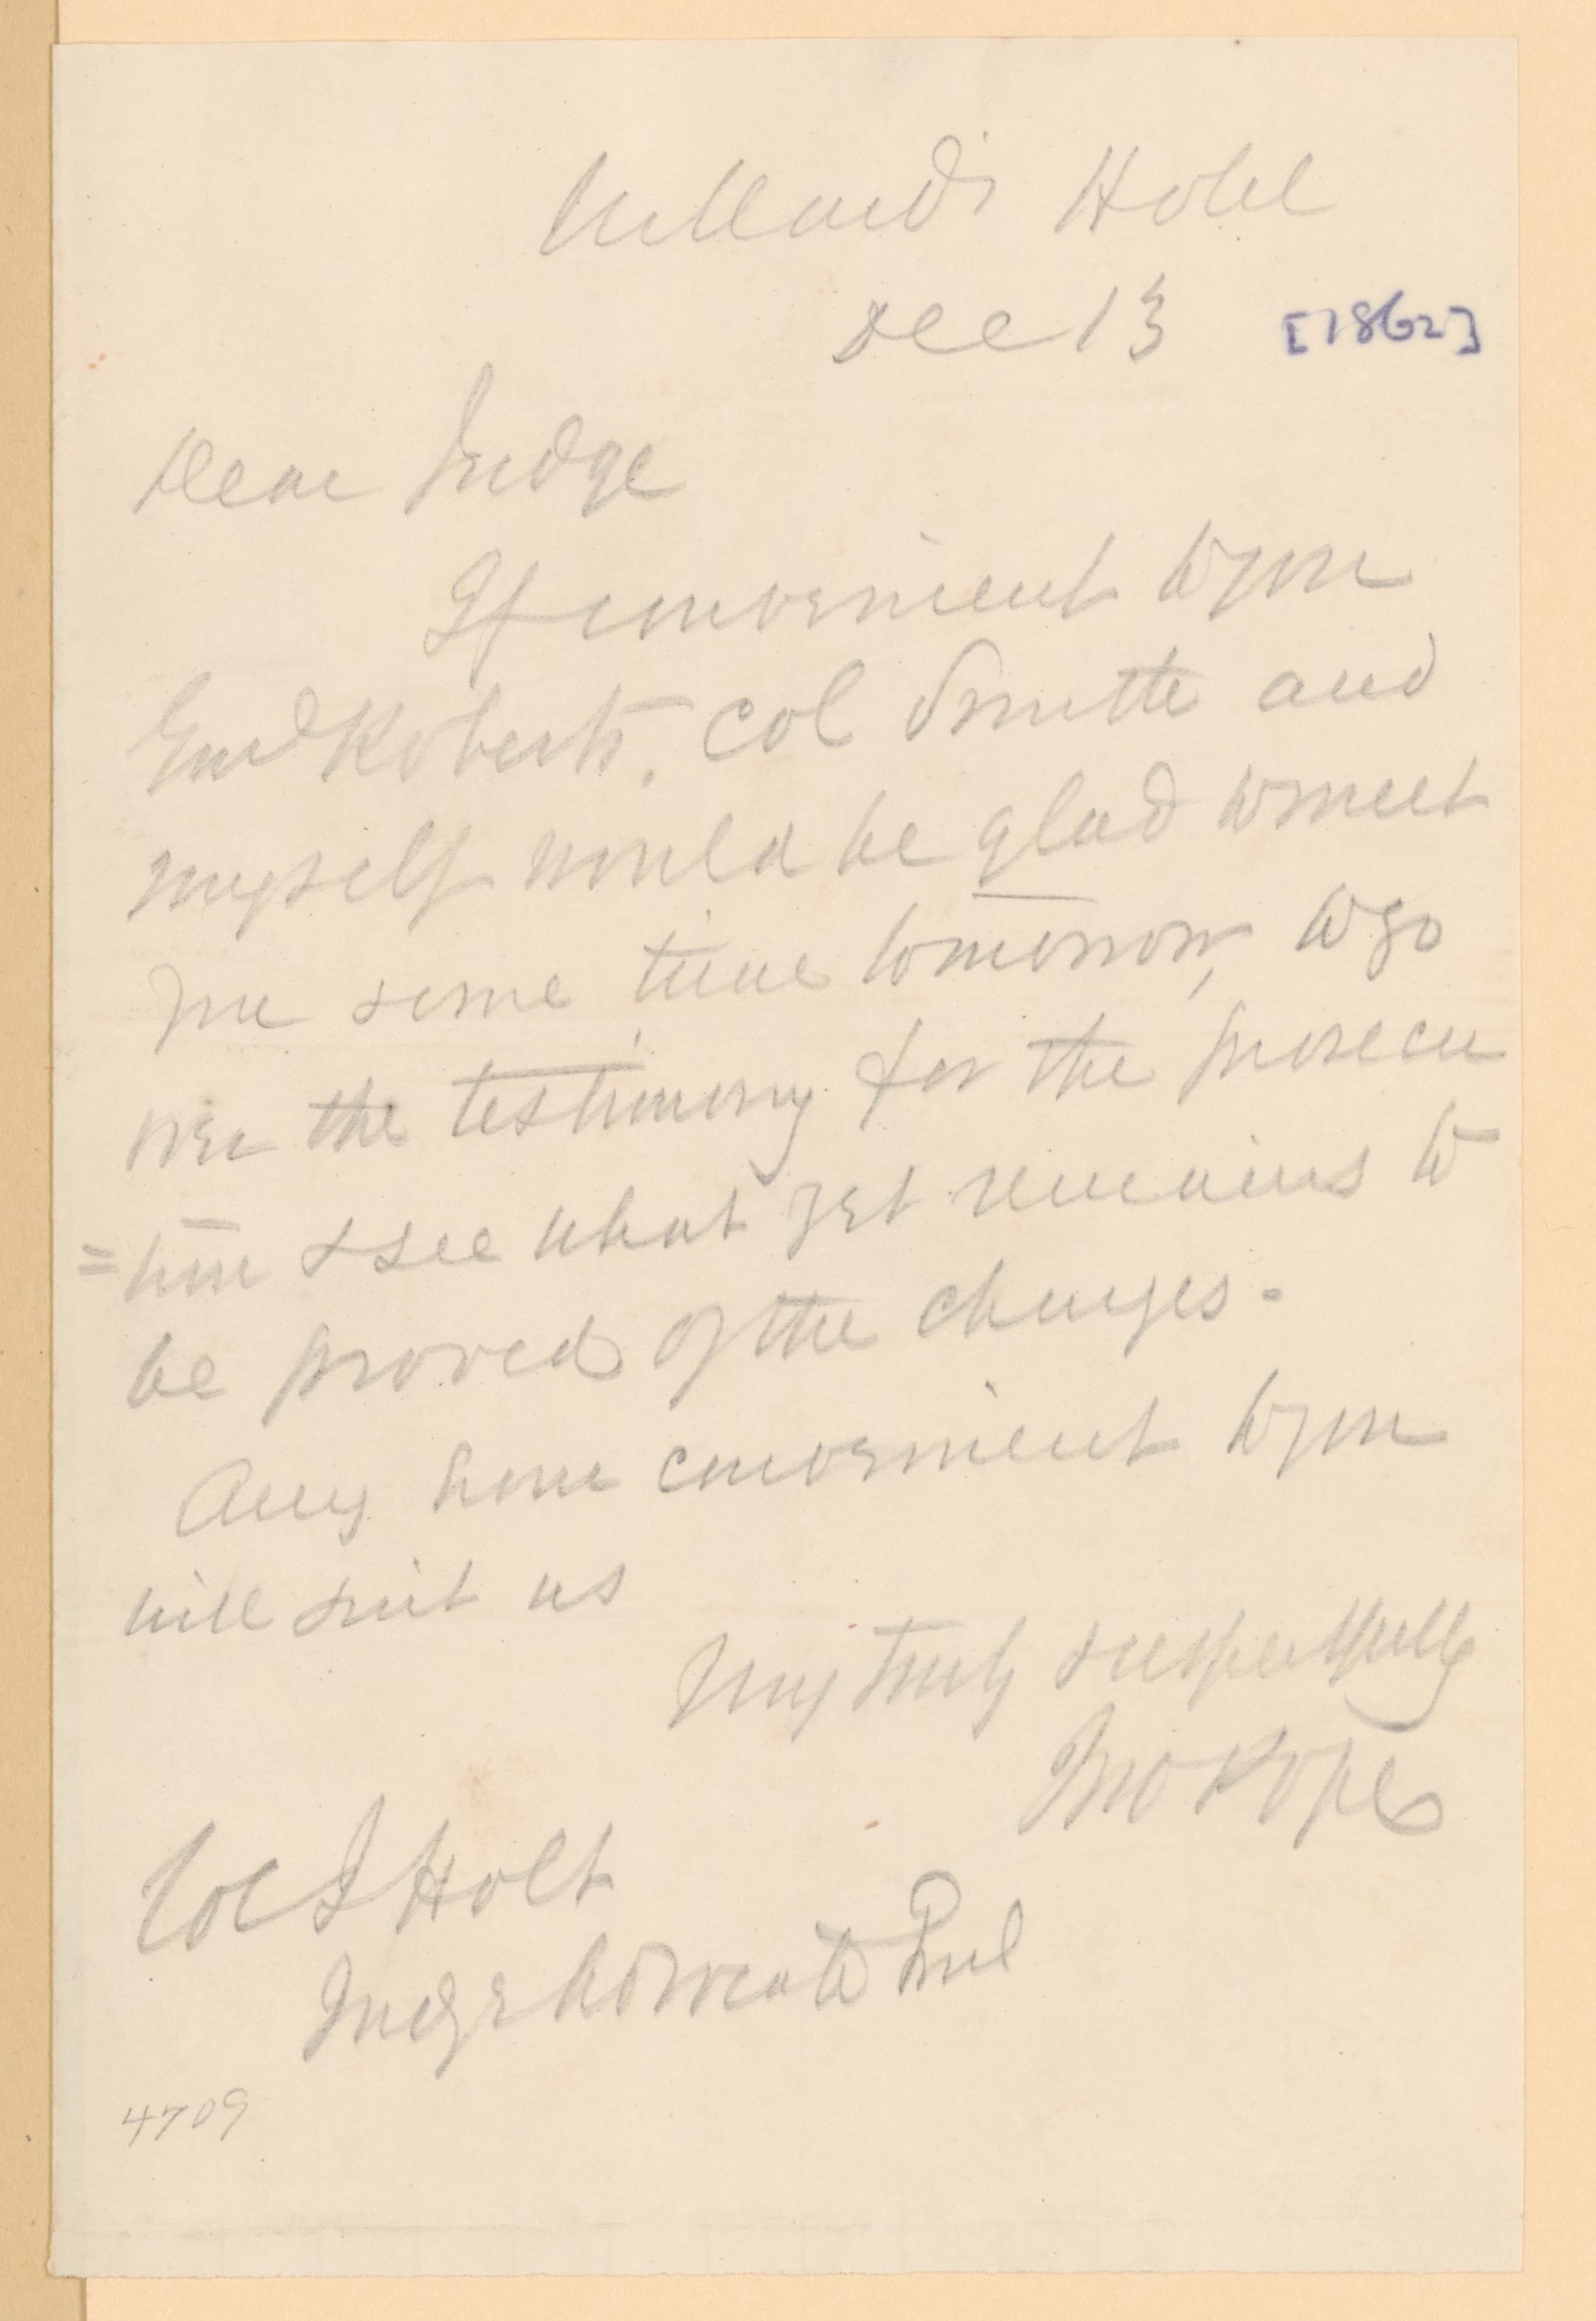 Willard's Hotel
Dec 13 [1862]
Dear Judge
If convenient to you
Genl Roberts, Col Smith and
myself would be glad to meet
you some time tomorrow, to go
over the testimony for the prosecu
=tion & see what yet remains to
be proved of the charges.
Any hour convenient to you
will suit us
Very truly & respectfully
Jno Pope
Col J Holt
Judge Advocate Genl
4709